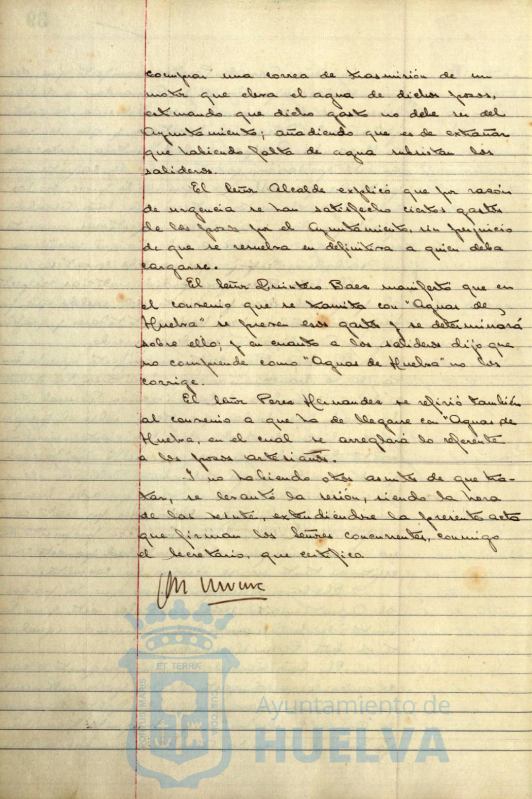 comprar una correa de trasmisión de un
motor que eleva el agua de dichos pozos,
estimando que dicho gasto no debe ser del
Ayuntamiento; añadiendo que es de extrañar
que habiendo falta de agua subsistan los
salideros.
El Señor Alcalde explicó que por razón
de urgencia se han satisfecho ciertos gastos
de los pozos por el Ayuntamiento, sin perjuicio
de que se resuelva en definitiva a quien deba
cargarse.
El Señor Quintero Baez manifestó que en
el convenio que se tramita con "Aguas de
Huelva" se preven esos gastos y se determinará
sobre ello; y en cuanto a los salideros dijo que
no comprende como "Aguas de Huelva" no los
corrige.
El Señor Perez Hernandez se refirió también
al convenio a que ha de llegarse con "Aguas de
Huelva, en el cual se arreglará lo referente
a los pozos artesianos.
Y no habiendo otros asuntos de que tra-
tar, se levantó la sesión, siendo la hora
de las veinte, extendiéndose la presente acta
que firman los Señores concurrentes, conmigo
el Secretario, que certifica
ET TERRA
Ayuntamiento de
HUELVA